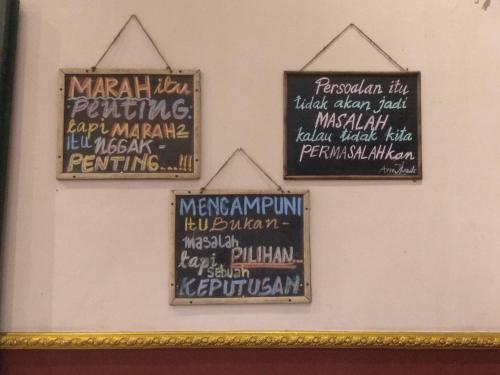 MARAH itu
PENTING.
tapi MARAH2
ITU NGGAK-
PENTING...!!!
Persoalan itu
tidak akan jadi
MASALAH
kalau tidak kita
PERMASALAHkan
MENGAMPUNI
ITU Bukan-
masalah
tapi PILIHAN...
sebuah
KEPUTUSAN